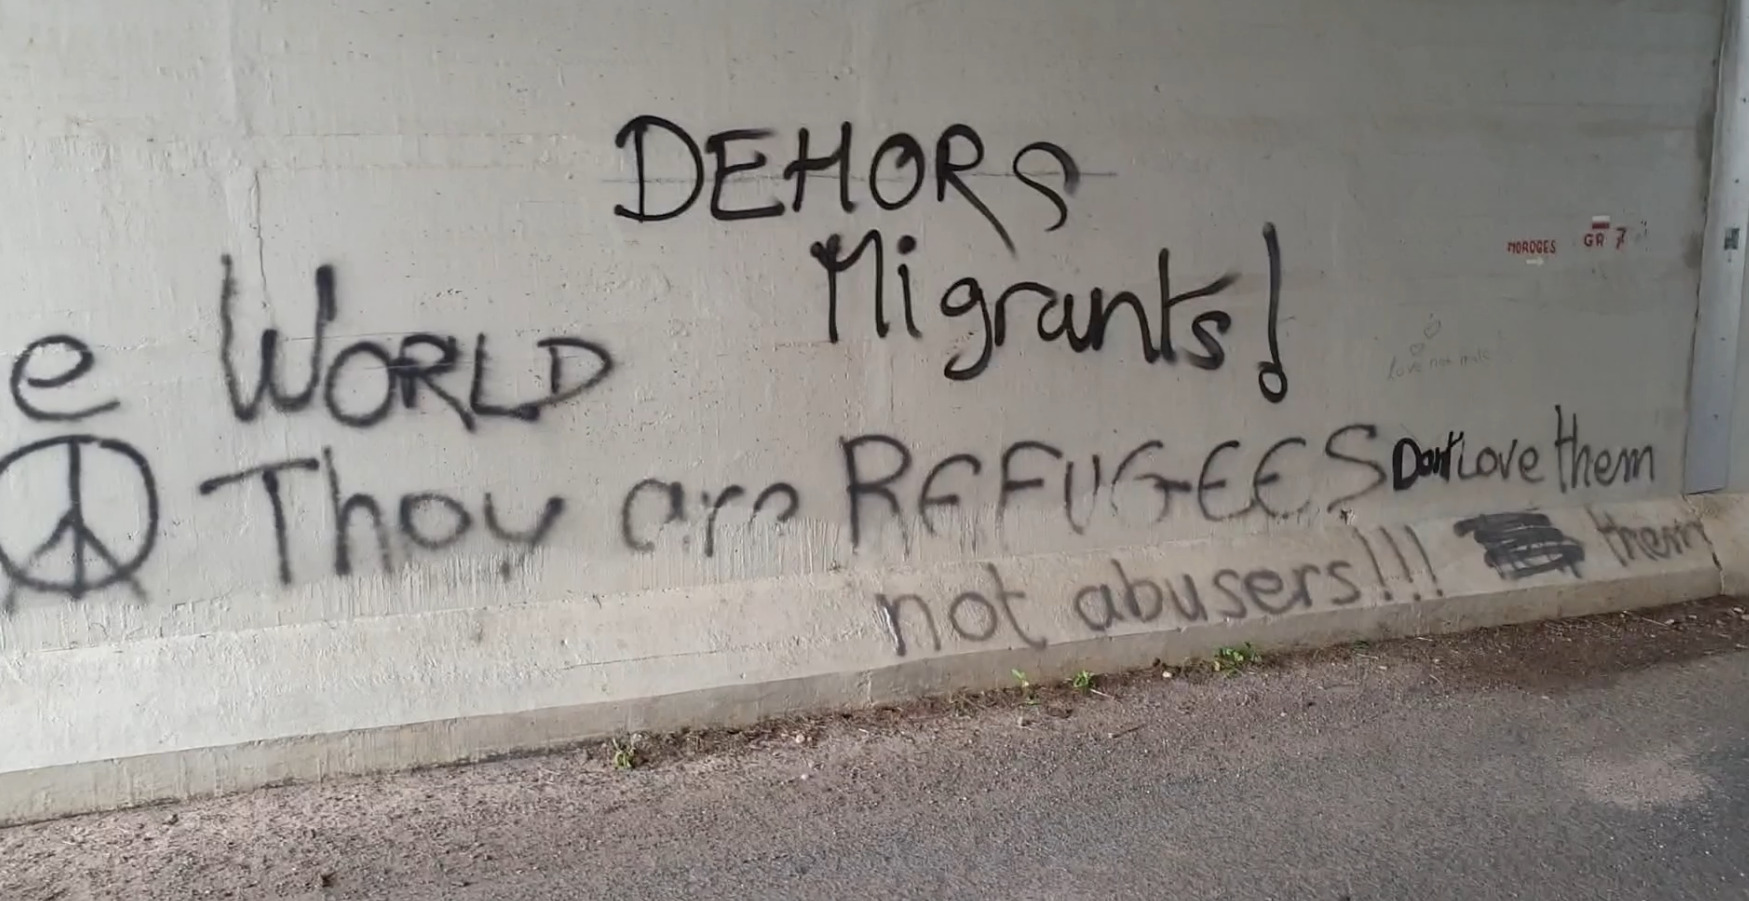 DEHORS
Migrants!
e WORLD
They are REFUGEES Dont Love them
not abusers!!! them
MOROGES
GR 7
Love not